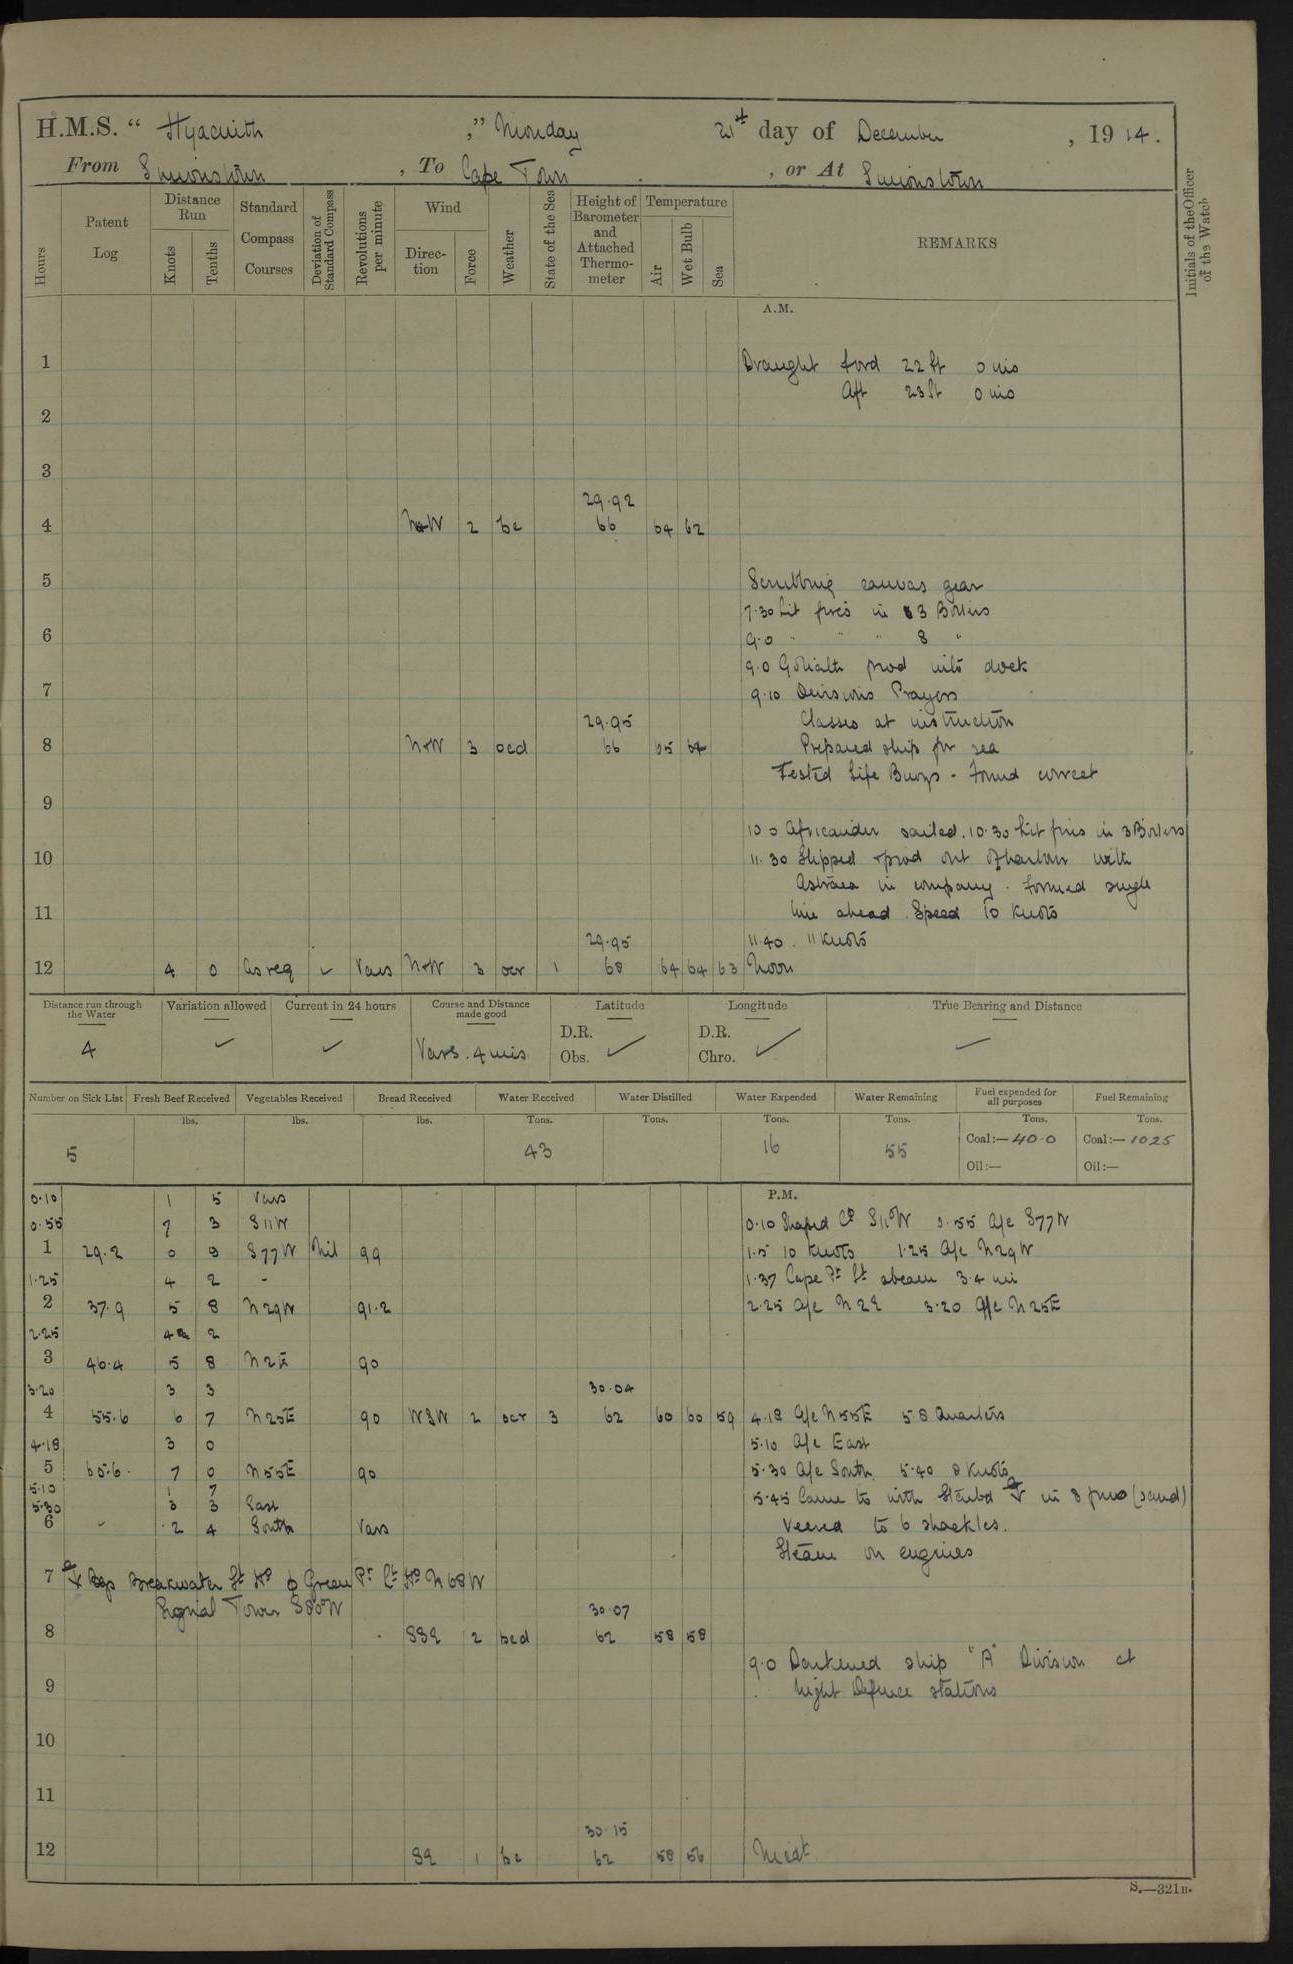 H.M.S. “ Hyacinth ,” Monday 21st day of December , 1914.
From Simonstown , To Cape Town , or At Simonstown
Hours
Patent Log
Distance Run
Knots
Tenths
Standard Compass Courses
Deviation of Standard Compass
Revolutions per minute
Wind
Direction
Force
Weather
State of the Sea
Height of Barometer and Attached Thermometer
Temperature
Air
Wet Bulb
Sea
REMARKS
Initials of the Officer of the Watch
A.M.
1 Draught ford 22 ft 0 ins
Aft 23 ft 0 ins
2
3
29.92
4 2 bc 66 64 62
5 Scrubbing canvas gear
7.30 Lit fires in 3 Boilers
6 9.0 " " " 8 "
9.0 Goliath procd into dock
7 9.10 Divisions Prayers
29.95 Classes at instruction
8 NW 3 ocd 66 65 64 Prepared ship for sea
Tested Life Buoys - Found correct
9
10.0 Africander sailed. 10.30 Lit fires in 3 Boilers
10 11.30 Slipped & procd out of harbour with
Astraea in company. Formed single
11 line ahead. Speed 10 knots
29.95 11.40. 11 knots
12 4 0 As req ✓ Vars NW 3 ocr 1 68 64 64 63 Noon
Distance run through the Water
Variation allowed
Current in 24 hours
Course and Distance made good
Latitude
Longitude
True Bearing and Distance
4 ✓ ✓ Vars. 4 mis D.R. Obs. ✓ D.R. Chro. ✓ ✓
Number on Sick List
Fresh Beef Received
Vegetables Received
Bread Received
Water Received
Water Distilled
Water Expended
Water Remaining
Fuel expended for all purposes
Fuel Remaining
lbs. lbs. lbs. Tons. Tons. Tons. Tons. Tons. Tons.
5 43 16 55 Coal:— 40.0 Coal:— 1025
Oil:— Oil:—
P.M.
0.10 1 5 Vars
0.55 7 3 S11W 0.10 Shaped Co S11°W 0.55 A/c S77W
1 29.2 0 9 S77W Nil 99 1.5 10 knots 1.25 A/c N29W
1.25 4 2 - 1.37 Cape Pt Lt abeam 3.4 mi
2 37.9 5 8 N29W 91.2 2.25 A/c N2E 3.20 A/c N25E
2.25 4 2
3 46.4 5 8 N2E 90
3.20 3 3 30.04
4 55.6 6 7 N25E 90 WSW 2 ocr 3 62 60 60 59 4.18 A/c N55E 5.8 Quarters
4.18 3 0 5.10 A/c East
5 65.6 7 0 N55E 90 5.30 A/c South 5.40 8 knots
5.10 1 7
5.30 3 3 East 5.45 Came to with Starbd ⚓ in 8 fms (sand)
6 ✓ 2 4 South Vars Veered to 6 shackles.
Steam on engines
7 ⚓ Bgs Breakwater Lt Ho φ Green Pt Lt Ho N68W
Signal Tower S80°W 30.07
8 SSE 2 bcd 62 58 58
9.0 Darkened ship "A" Division at
9 Night Defence stations
10
11
30.15
12 SE 1 bc 62 58 56 Midt
S.—321B.